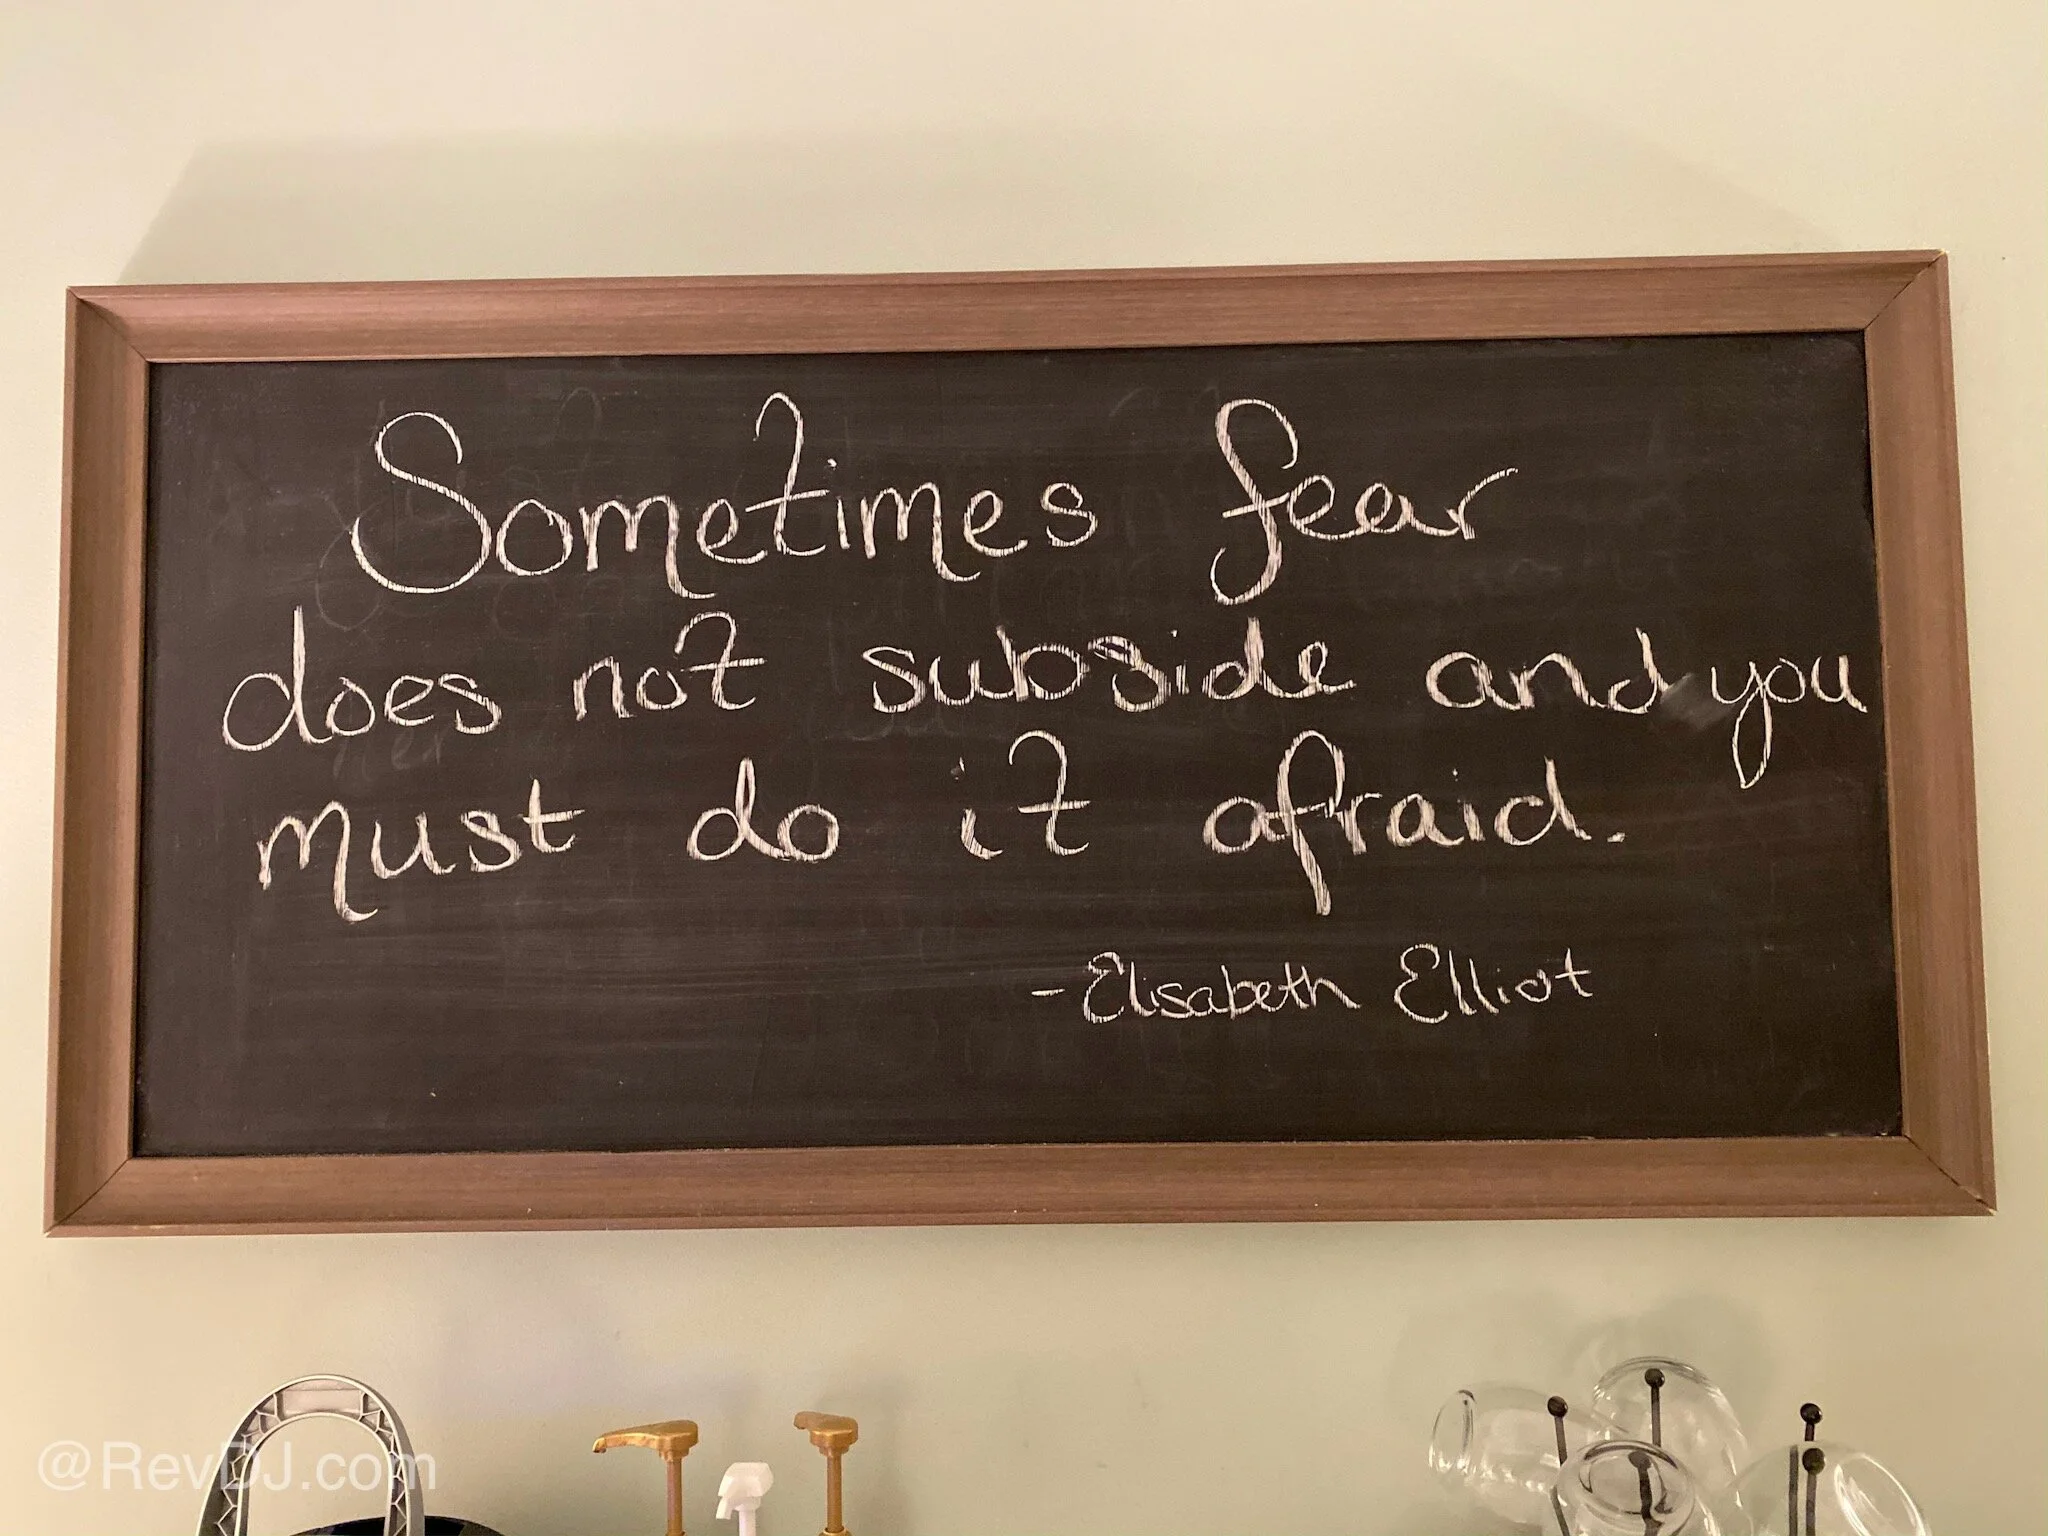 Sometimes fear
does not subside and you
must do it afraid.
-Elisabeth Elliot
@RevDJ.com